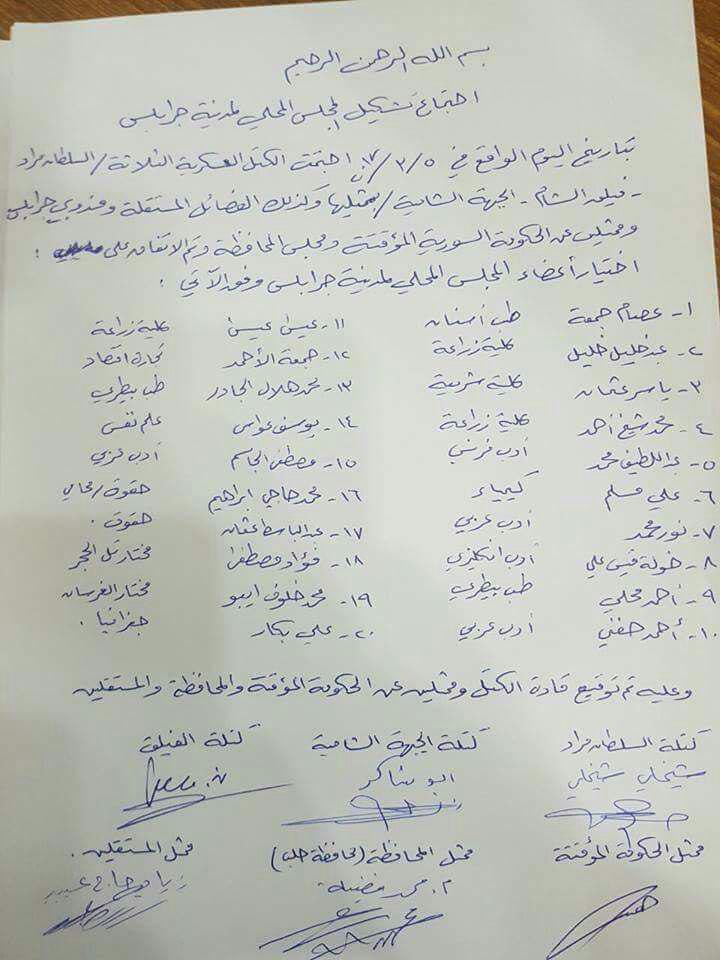 بسم الله الرحمن الرحيم
اجتماع تشكيل المجلس المحلي لمدينة جرابلس
بتاريخ اليوم الواقع في ٥ / ٣ / ٠١٧ اجتمعت الكتل العسكرية الثلاثة / السلطان مراد
- فيلق الشام - الجبهة الشامية / وكذلك الفصائل المستقلة ومندوبي جرابلس
وممثلين عن الحكومة السورية المؤقتة ومجلس المحافظة وتم الاتفاق على :
اختيار أعضاء المجلس المحلي لمدينة جرابلس وفق الآتي :
١- عصام جمعة طب أسنان ١١- عيسى عيسى كلية زراعة
٢- عبد خليل خليل كلية زراعة ١٢- جمعة الأحمد تجارة اقتصاد
٣- ياسر عثمان كلية شريعة ١٣- محمد هلال الجادر طب بيطري
٤- محمد شيخ أحمد كلية زراعة ١٤- يوسف عواس علم نفس
٥- عبد اللطيف محمد أدب فرنسي ١٥- مصطفى الجاسم أدب عربي
٦- علي مسلم كيمياء ١٦- محمد حاجي ابراهيم حقوق / محامي
٧- نور محمد أدب عربي ١٧- عبد الباسط عثمان حقوق .
٨- خولة قيس علي أدب انكليزي ١٨- فؤاد مصطفى مختار تل الحجر
٩- أحمد محلي طب بيطري ١٩- محمد خلوف ايبو مختار الغرسان
١٠- أحمد حنفي أدب عربي ٢٠- علي بكار جغرافيا .
وعليه تم توقيع قادة الكتل وممثلين عن الحكومة المؤقتة والمحافظة والمستقلين
كتلة السلطان مراد كتلة الجبهة الشامية كتلة الفيلق
أبو شاكر
ممثل الحكومة المؤقتة ممثل المحافظة (محافظة حلب) ممثل المستقلين .
م. محمد فضيلة